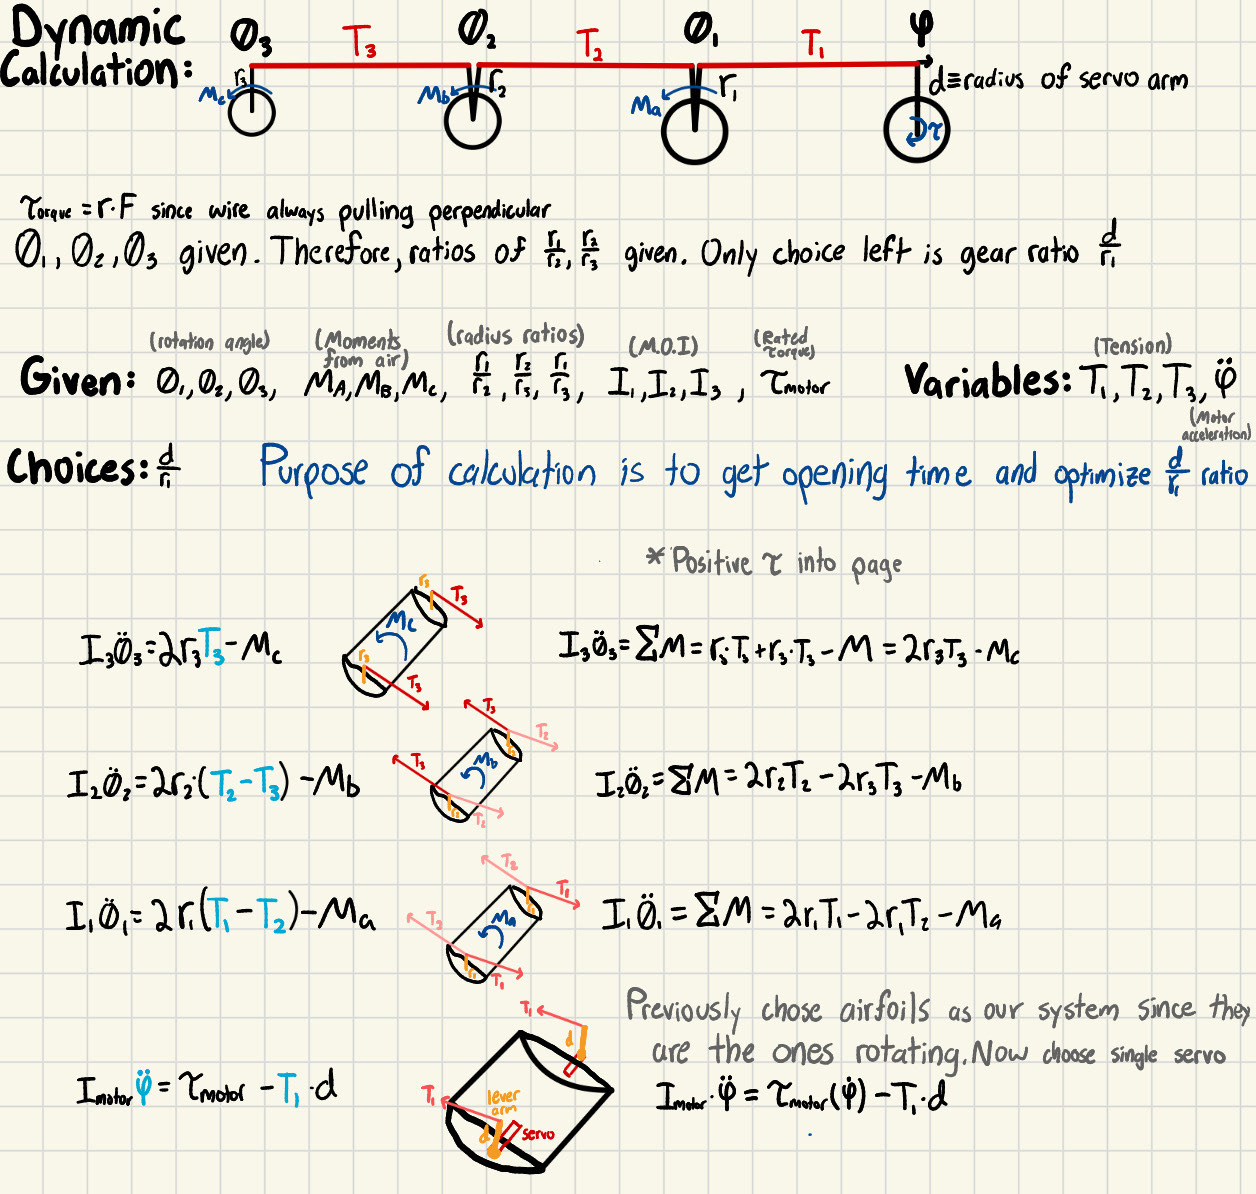 Dynamic
Calculation:
Ø₃ T₃ Ø₂ T₂ Ø₁ T₁ φ
r₃ Mc Mb r₂ Ma r₁ τ
d≡radius of servo arm
τorque = r·F since wire always pulling perpendicular
Ø₁, Ø₂, Ø₃ given. Therefore, ratios of r₁/r₂, r₂/r₃ given. Only choice left is gear ratio d/r₁
(rotation angle) (Moments from air) (radius ratios) (M.O.I) (Rated Torque) (Tension)
Given: Ø₁, Ø₂, Ø₃, MA, MB, Mc, r₁/r₂, r₂/r₃, r₁/r₃, I₁, I₂, I₃, τmotor Variables: T₁, T₂, T₃, φ̈
(Motor acceleration)
Choices: d/r₁ Purpose of calculation is to get opening time and optimize d/r₁ ratio
* Positive τ into page
r₃ T₃ Mc r₃ T₃
I₃Ø̈₃ = 2r₃T₃ - Mc I₃Ø̈₃ = ΣM = r₃·T₃ + r₃·T₃ - M = 2r₃T₃ - Mc
T₃ T₂ T₃ MB T₂
I₂Ø̈₂ = 2r₂·(T₂ - T₃) - Mb I₂Ø̈₂ = ΣM = 2r₂T₂ - 2r₃T₃ - Mb
T₂ T₁ T₂ Ma r₁ T₁
I₁Ø̈₁ = 2r₁(T₁ - T₂) - Ma I₁Ø̈₁ = ΣM = 2r₁T₁ - 2r₁T₂ - Ma
Previously chose airfoils as our system since they
are the ones rotating. Now choose single servo
T₁ d T₁ lever arm d servo
Imotor φ̈ = τmotor - T₁·d Imotor·φ̈ = τmotor(φ̇) - T₁·d